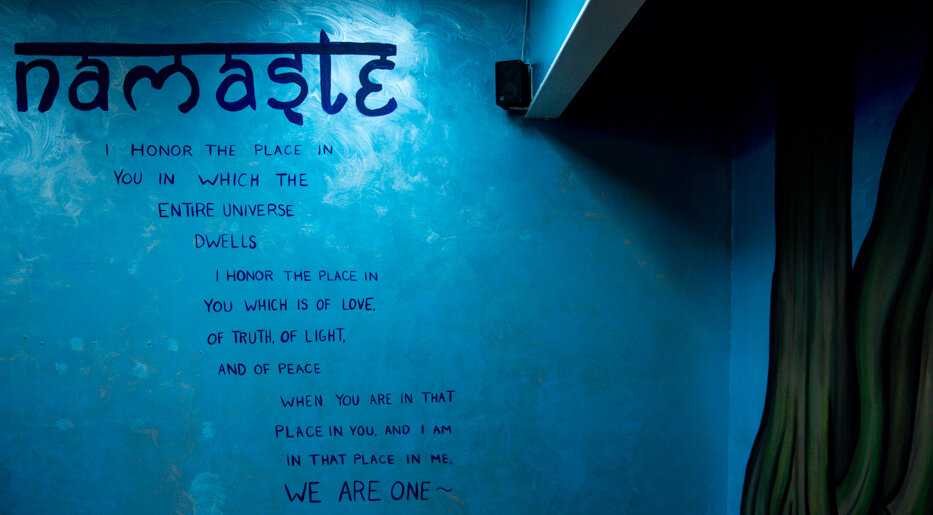 namaste
I HONOR THE PLACE IN
YOU IN WHICH THE
ENTIRE UNIVERSE
DWELLS
I HONOR THE PLACE IN
YOU WHICH IS OF LOVE,
OF TRUTH, OF LIGHT,
AND OF PEACE
WHEN YOU ARE IN THAT
PLACE IN YOU, AND I AM
IN THAT PLACE IN ME,
WE ARE ONE~